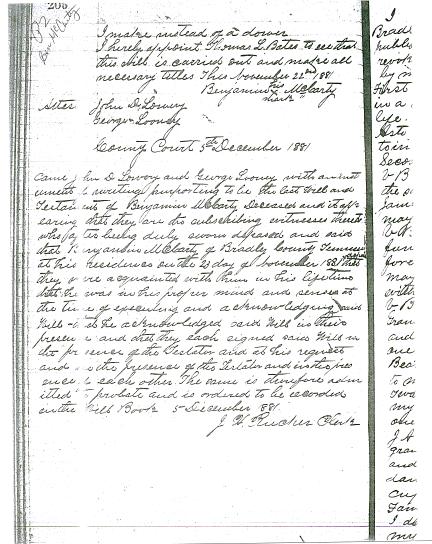 205
I make instead of a dower
I hereby appoint Thomas L. Bates to see that
this will is carried out and make all
necessary titles This November 22nd 1881
his
Benjamin McCarty
mark
Attest John D. Lowry
George Looney
County Court 5th December 1881
Came John D Lowry and George Looney with an inst
rument writing purporting to be the last Will and
Testament of Benjamin McCarty Deceased and it app
earing that they are the subscribing witnesses thereto
who being duly sworn deposed and said
that Benjamin McCarty of Bradley County Tennessee
at his residence on the 23 day of November 1881 that
they were acquainted with him in his lifetime
that he was in his proper mind and senses at
the time of executing and acknowledging said
Will that he acknowledged said Will in their
presence and that they each signed said Will in
the presence of the Testator and at his request
and in the presence of the Testator and in the pres
ence of each other. The same is therefore adm
itted to probate and is ordered to be recorded
in the Will Book 5 December 1881.
J. H. Rucker Clerk
I
Bradl
publi
revok
by m
First
in a
life.
to in
Seco.
the
may
fore
may
with
and
one
to
my
one
J A
gran
and
dau
I do
my